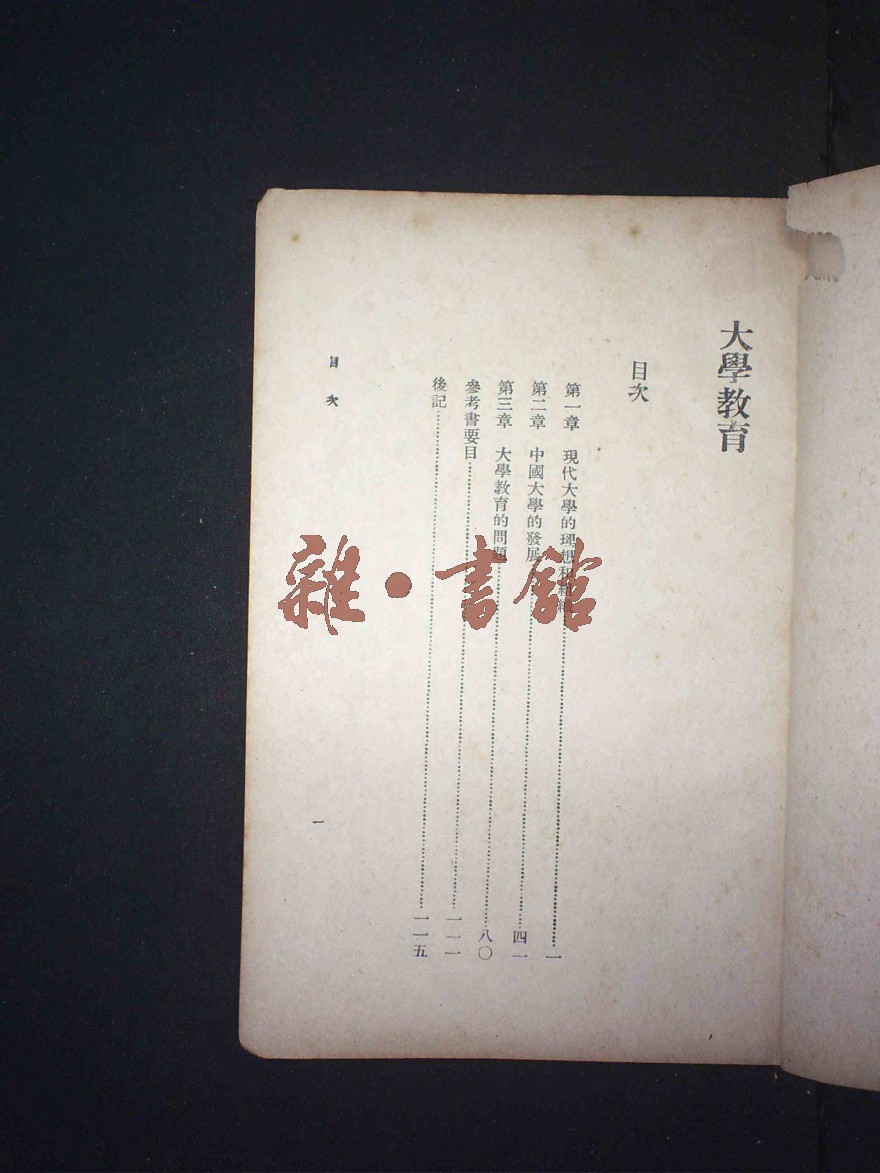 大學教育
目次
第一章 現代大學的理想和組織……一
第二章 中國大學的發展……四一
第三章 大學教育的問題……八〇
參考書要目……一一一
後記……一一五
目次
一
雜·書館